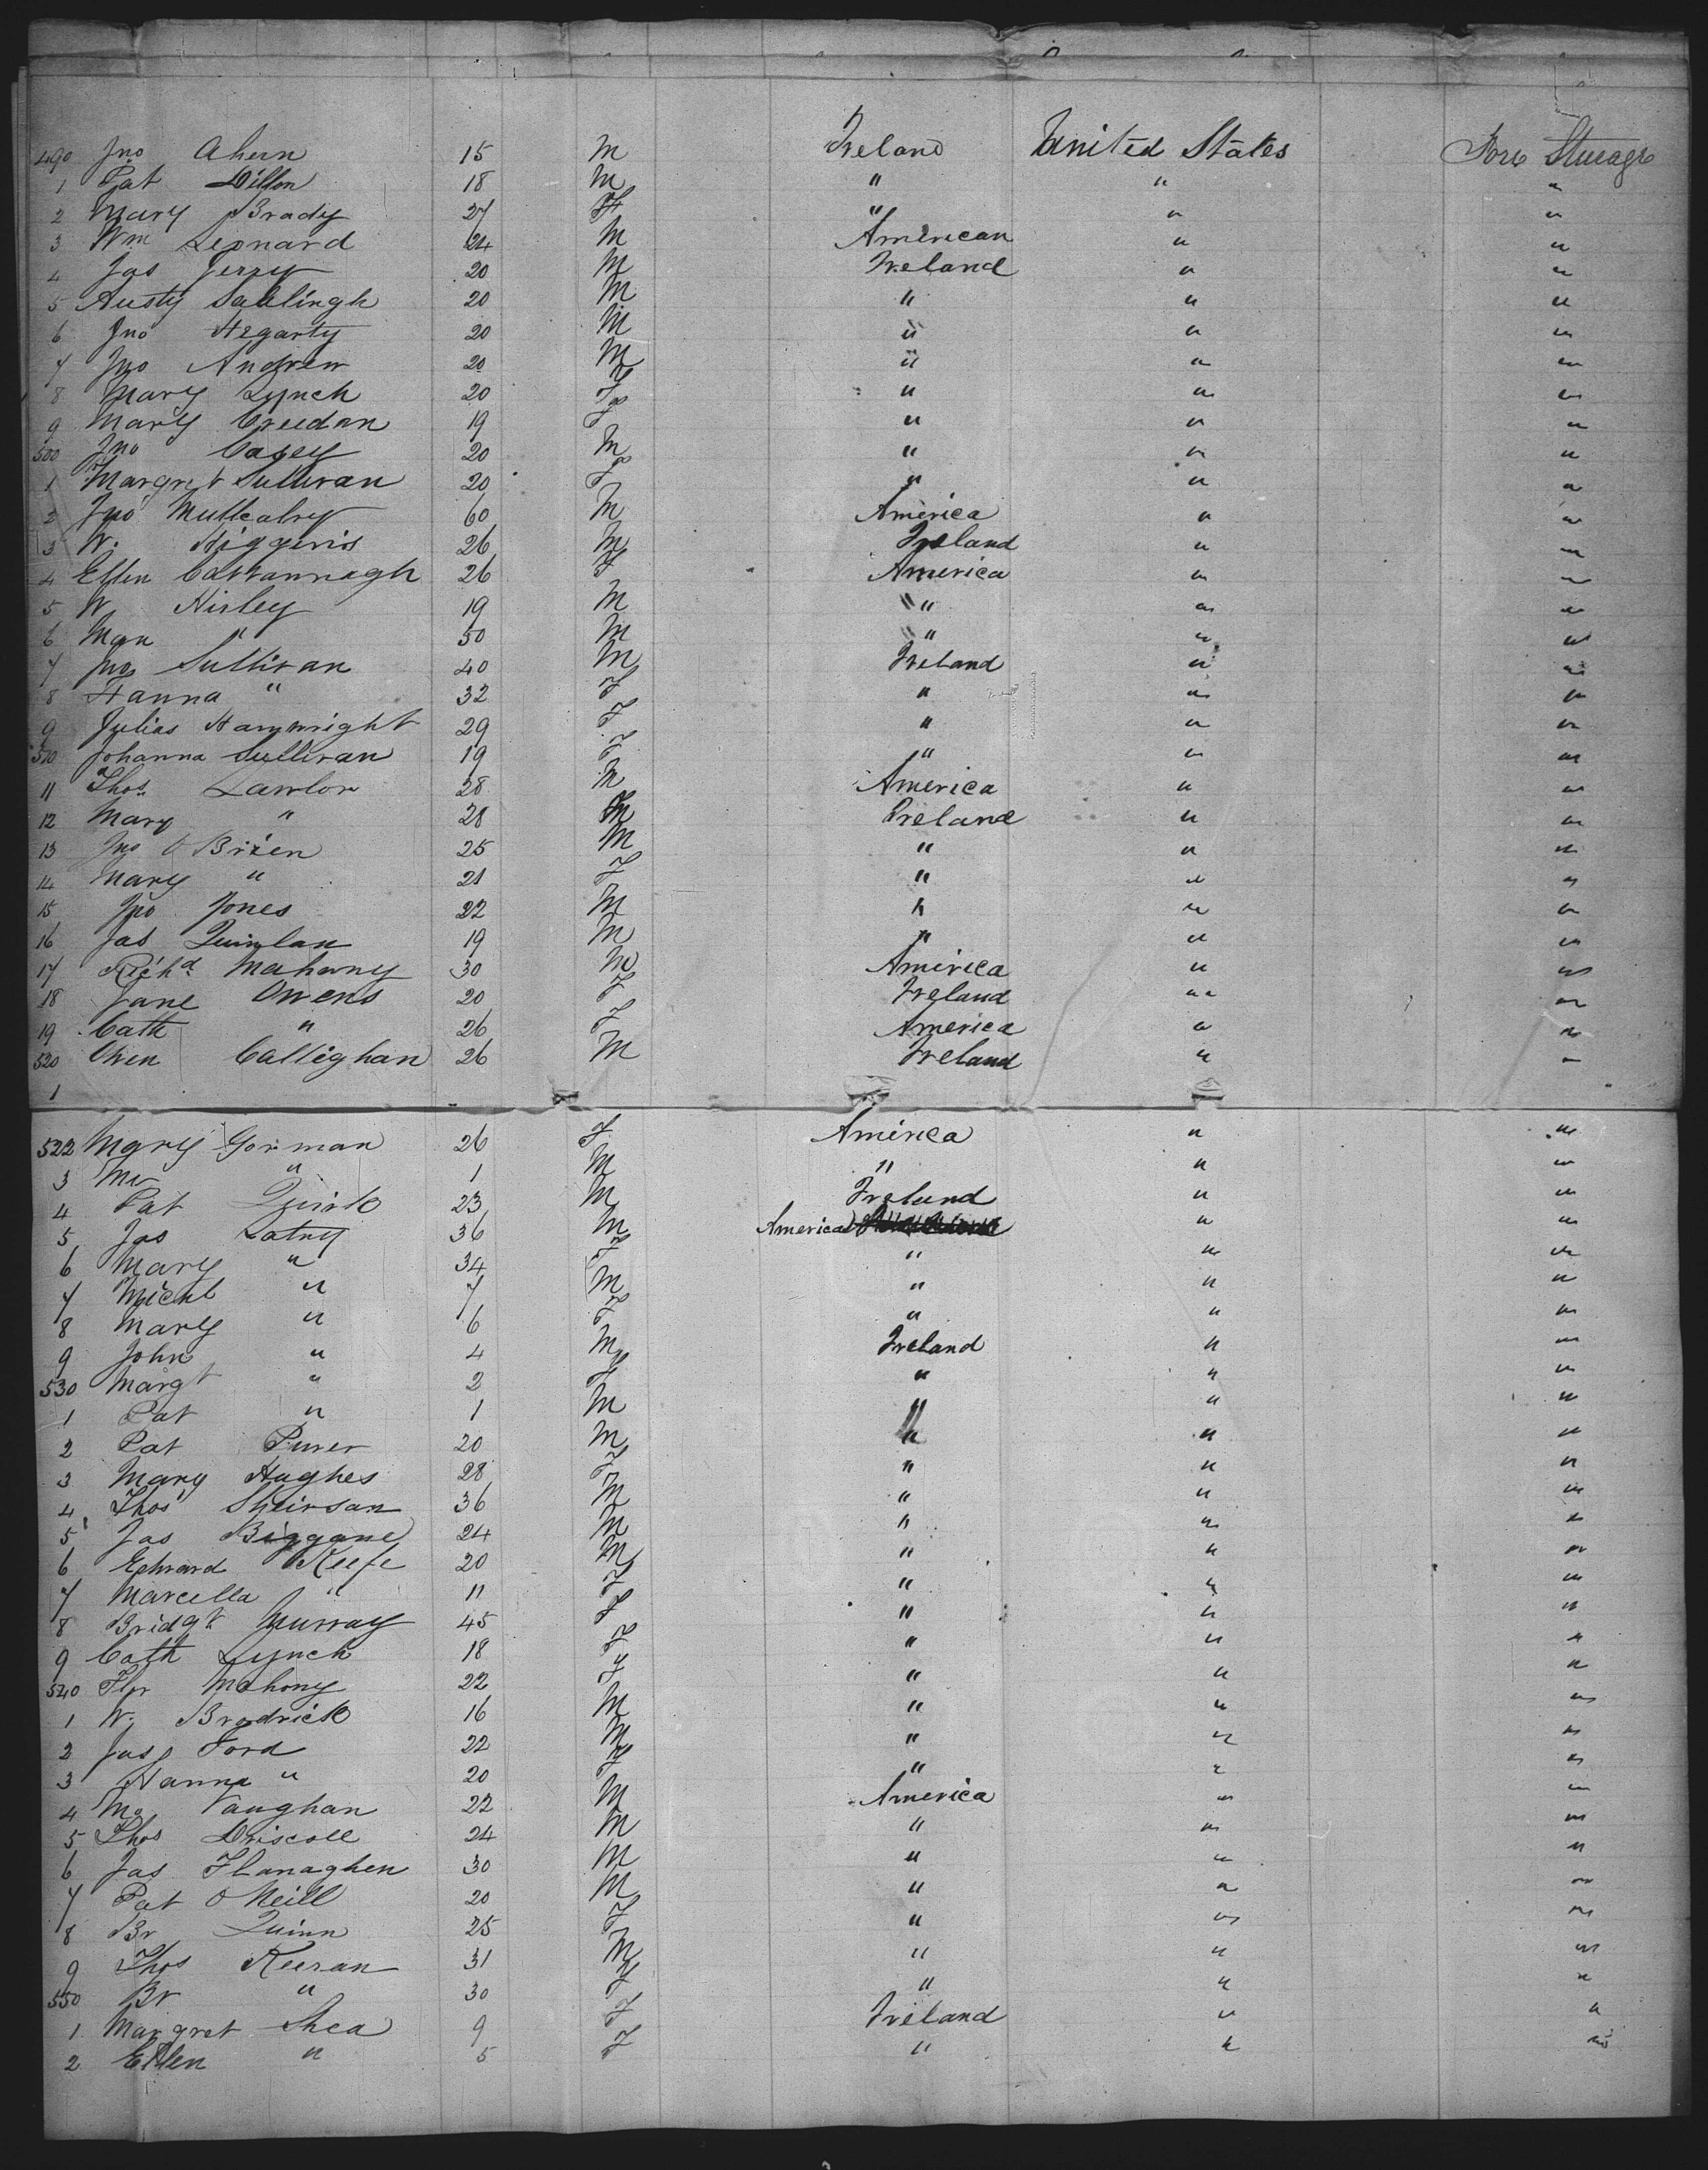 490 Jno Ahern 15 M Ireland United States Fore Steerage
1 Pat Dillon 18 M " " "
2 Mary Brady 27 F " " "
3 Wm Leonard 24 M American " "
4 Jas 20 M Ireland " "
5 Austy 20 M " " "
6 Jno Hegarty 20 M " " "
7 Jno Andrew 20 M " " "
8 Mary Lynch 20 F " " "
9 Mary Creedan 19 F " " "
500 Jno Casey 20 M " " "
1 Margret Sullivan 20 F " " "
2 Jno 60 M America " "
3 W. Higgins 26 M Ireland " "
4 Ellen Cavannagh 26 F America " "
5 W Hirley 19 M " " "
6 " 50 M " " "
7 Jno Sullivan 40 M Ireland " "
8 Hanna " 32 F " " "
9 Julias 29 F " " "
510 Johanna Sullivan 19 F " " "
11 Thos Lawlor 28 M America " "
12 Mary " 28 Ireland " "
13 Jno O Brien 25 M " " "
14 Mary " 21 F " " "
15 Jno Jones 22 M " " "
16 Jas Quinlan 19 M " " "
17 Richd Mahony 30 M America " "
18 Jane Owens 20 F Ireland " "
19 Cath " 26 F America " "
520 Owen Callighan 26 M Ireland " "
1
522 Mary Gorman 26 F America " "
3 " 1 M " " "
4 Pat Quirk 23 M Ireland " "
5 Jas 36 M America " "
6 Mary " 34 F " " "
7 Michl " 7 M " " "
8 Mary " 6 F " " "
9 John " 4 M Ireland " "
530 Margt " 2 F " " "
1 Pat " 1 M " " "
2 Pat 20 M " " "
3 Mary Hughes 28 F " " "
4 Thos 36 M " " "
5 Jas Biggane 24 M " " "
6 Edward Keefe 20 M " " "
7 Marcella " 11 F " " "
8 Bridgt Murray 45 F " " "
9 Cath Lynch 18 F " " "
540 Flor Mahony 22 F " " "
1 W. Brodrick 16 M " " "
2 Ford 22 M " " "
3 Hanna " 20 F " " "
4 Vaughan 22 M America " "
5 Thos Driscoll 24 M " " "
6 Jas Flanaghen 30 M " " "
7 Pat O Neill 20 M " " "
8 Br Quinn 25 F " " "
9 Thos Keeran 31 M " " "
550 Br " 30 F " " "
1 Margret Shea 9 F Ireland " "
2 Ellen " 5 F " " "